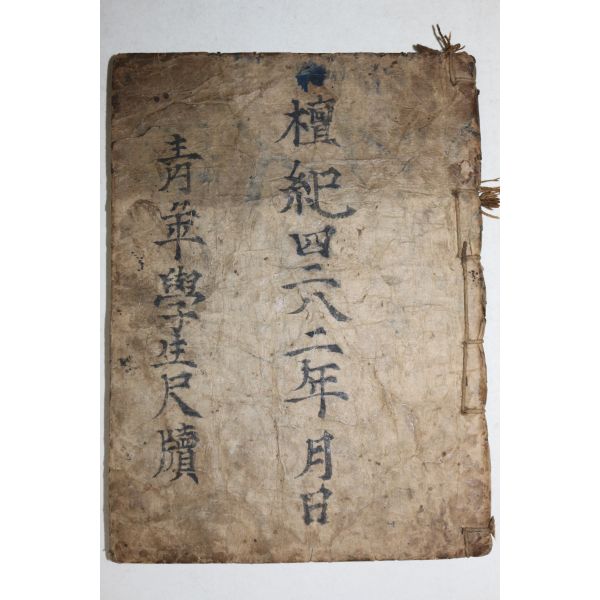 檀紀四二八二年 月 日
靑年學生尺牘